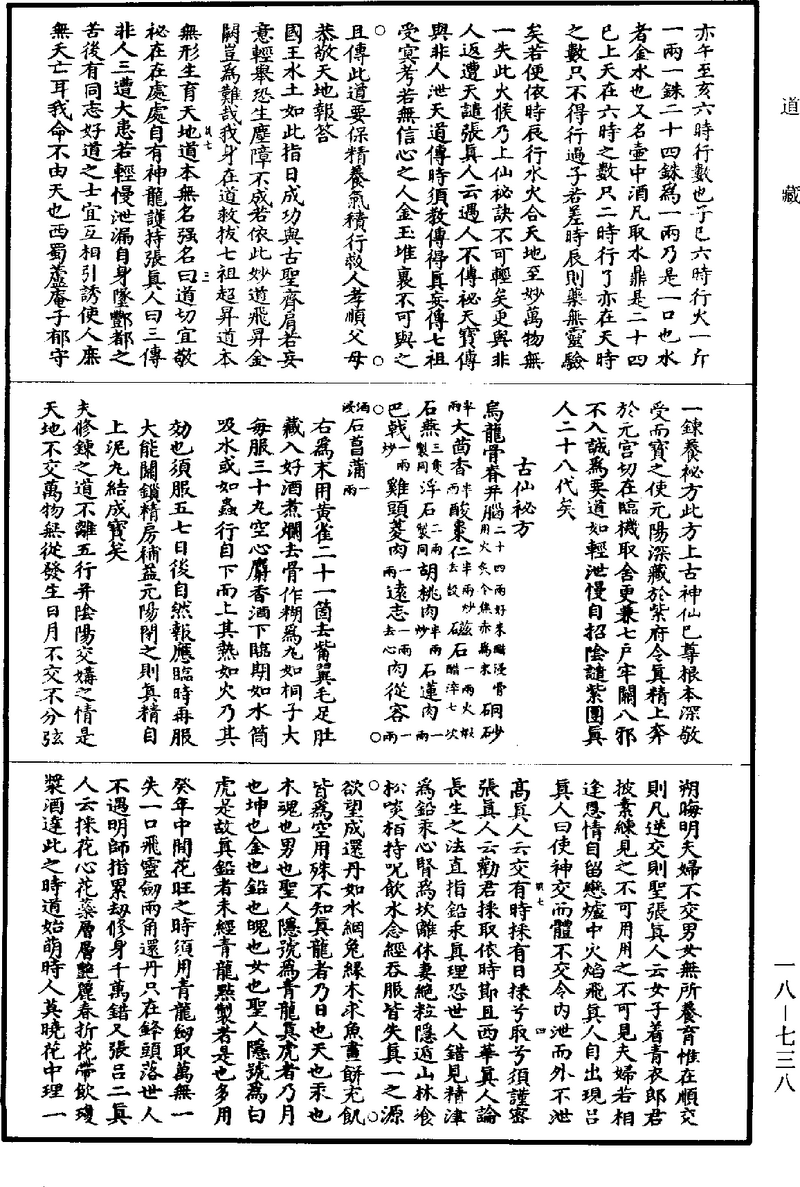 道藏
亦午至亥六時行數也子巳六時行火一斤
一兩一銖二十四銖爲一兩乃是一口也水
者金水也又名壺中酒凡取水鼎是二十四
巳上天在六時之數只二時行了亦在天時
之數只不得行過子若差時辰則藥無靈驗
矣若便依時辰行水火合天地至妙萬物無
一失此火候乃上仙秘訣不可輕矣更與非
人返遭天譴張眞人云遇人不傳祕天寶傳
與非人泄天道傳時須教傳得眞妄傳七祖
受冥考若無信心之人金玉堆裏不可與之
且傳此道要保精養氣積行救人孝順父母
恭敬天地報答
國王水土如此指日成功與古聖齊肩若妄
意輕舉恐生塵障不成若依此妙道飛昇金
闕豈爲難哉我身在道救拔七祖超昇道本
無形生育天地道本無名强名曰道切宜敬
祕在在處處自有神龍護持張眞人曰三傳
非人三遭大患若輕慢泄漏自身墜酆都之
苦後有同志好道之士宜互相引誘使人庶
無夭亡耳我命不由天也西蜀蘆庵子郁守
一鍊養祕方此方上古神仙巴尊根本深敬
受而寶之使元陽深藏於紫府令眞精上奔
於元宮切在臨機取舍更兼七戶牢關八邪
不入誠爲要道如輕泄慢自招陰譴紫團眞
人二十八代矣
古仙秘方
烏龍骨脊并腦二十四兩好米醋浸骨用火炙令焦赤爲末 硇砂
半兩大茴香半兩酸棗仁半兩炒去殼磁石一兩火煅醋淬七次
石燕三雙製同浮石二兩製同胡桃肉半兩炒石蓮肉一兩
巴戟一兩炒雞頭菱肉一兩遠志一兩去心肉從容一兩
酒浸石菖蒲一兩
右爲末用黄雀二十一箇去觜翼毛足肚
藏入好酒煮爛去骨作糊爲丸如桐子大
每服三十丸空心麝香酒下臨期如水筒
吸水或如蟲行自下而上其熱如火乃其
効也須服五七日後自然報應臨時再服
大能關鎖精房補益元陽閉之則眞精自
上泥丸結成寶矣
夫修鍊之道不離五行并陰陽交媾之情是
天地不交萬物無從發生日月不交不分弦
朔晦明夫婦不交男女無所養育惟在順交
則凡逆交則聖張眞人云女子着青衣郎君
披素練見之不可用用之不可見夫婦若相
逢恩情自留戀爐中火焰飛眞人自出現呂
眞人曰使神交而體不交令内泄而外不泄
高眞人云交有時採有日採兮取兮須謹密
張眞人云勸君採取依時節且西華眞人論
長生之法直指鉛汞眞理恐世人錯見精津
爲鉛汞心腎爲坎離休妻絶粒隱遁山林飡
松啖栢持呪飲水念經吞服皆失眞一之源
欲望成還丹如水網兔緣木求魚畫餅充飢
皆爲空用殊不知眞龍者乃日也天也汞也
木魂也男也聖人隱號爲青龍眞虎者乃月
也坤也金也鉛也魄也女也聖人隱號爲白
虎是故眞鉛者未經青龍點製者是也多用
癸年中開花旺之時須用青龍劒取萬無一
失一口飛靈劒兩角還丹只在鋒頭落世人
不遇明師指累劫修身千萬錯又張呂二眞
人云採花心花蘂層層艶麗春折花帶飲瓊
漿酒逢此之時道始萌時人莫曉花中理一
一八—七三八